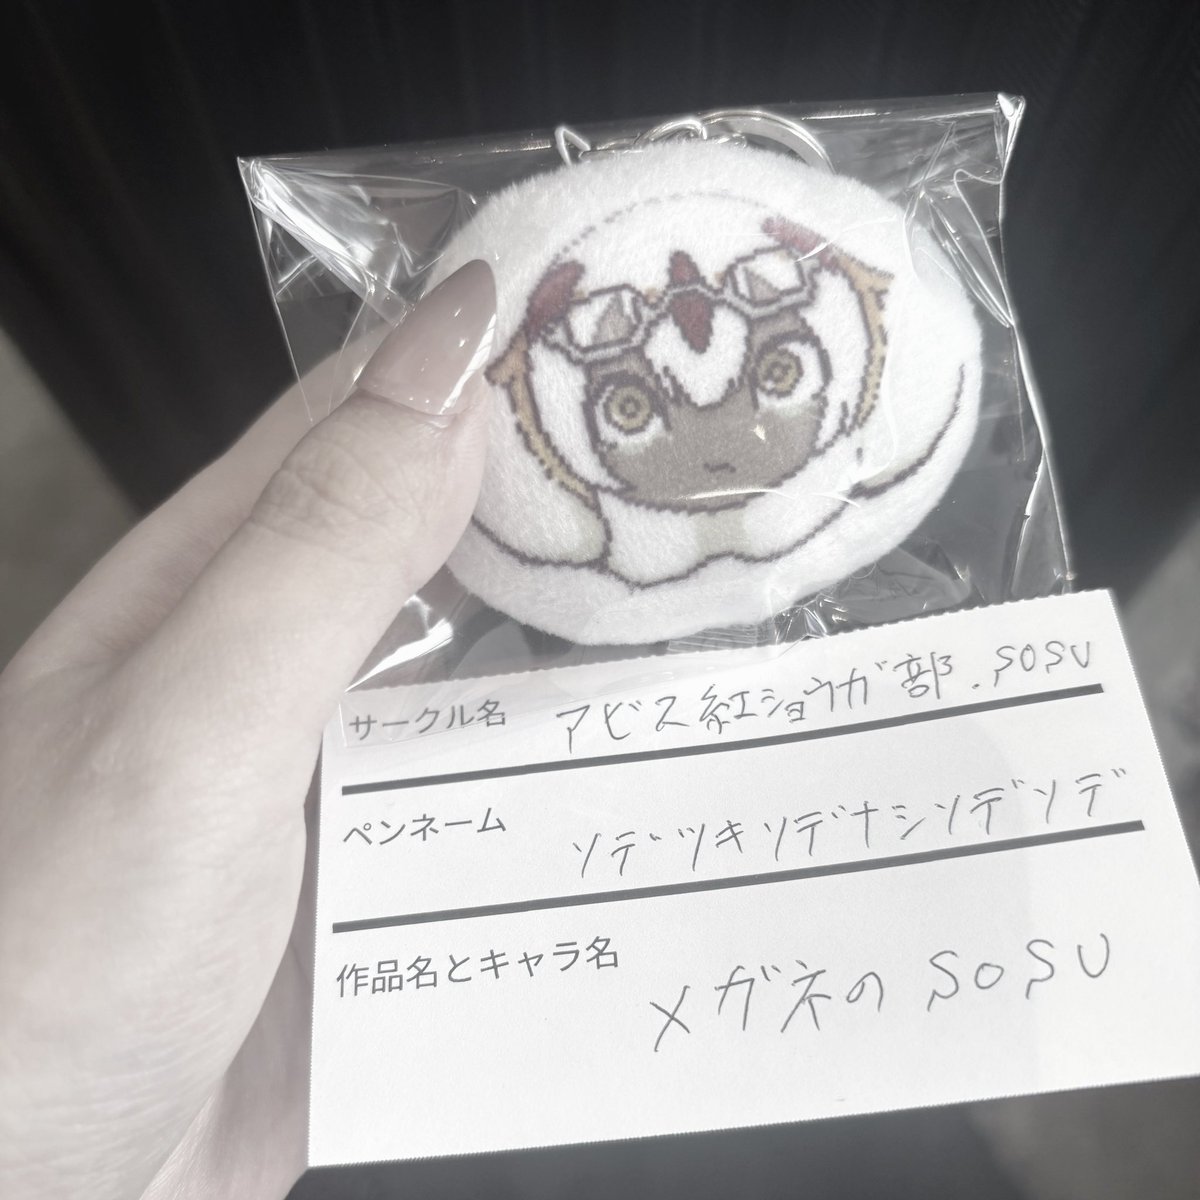 サークル名 アビス紅ショウガ部.SOSU
ペンネーム ソデツキソデナシソデソデ
作品名とキャラ名 メガネのSOSU